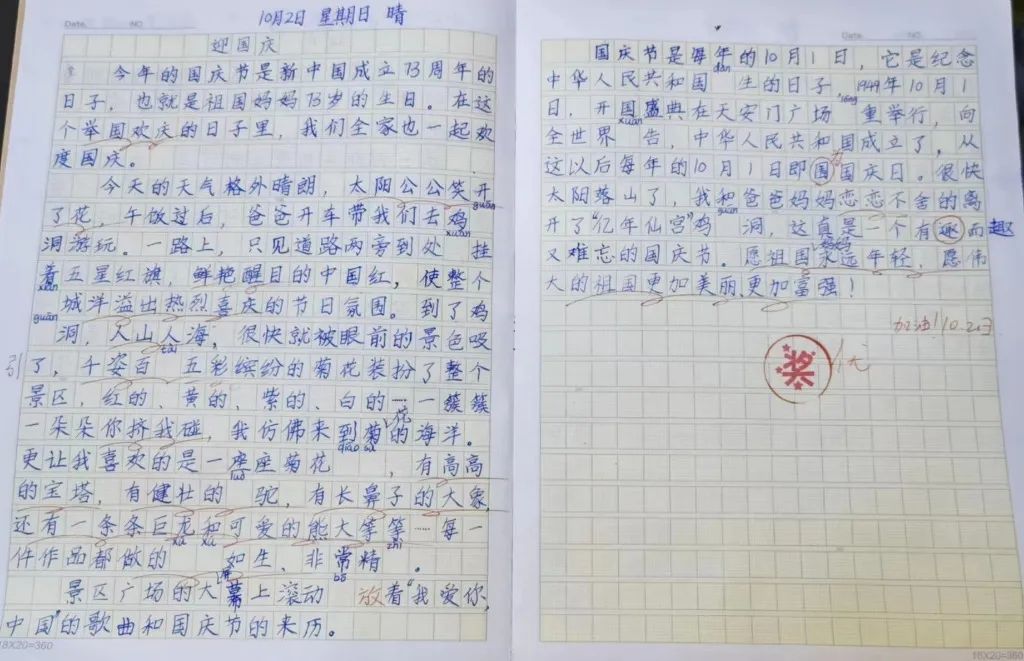 10月2日 星期日 晴
迎国庆
今年的国庆节是新中国成立73周年的
日子，也就是祖国妈妈73岁的生日。在这
个举国欢庆的日子里，我们全家也一起欢
度国庆。
今天的天气格外晴朗，太阳公公笑开
guān
了花，午饭过后，爸爸开车带我们去鸡
xuán
洞游玩。一路上，只见道路两旁到处 挂
着五星红旗，鲜艳醒目的中国红，使整个
城洋溢出热烈喜庆的节日氛围。到了鸡
guān
洞，人山人海，很快就被眼前的景色吸
tài
引了，千姿百 五彩缤纷的菊花装扮了整个
景区，红的、黄的、紫的、白的……一簇簇
花
一朵朵你挤我碰，我仿佛来到菊的海洋。
diāo sù
更让我喜欢的是一座座菊花 ，有高高
luò
的宝塔，有健壮的 驼，有长鼻子的大象，
还有一条条巨龙和可爱的熊大等等……每一
xǔ xǔ zhì
件作品都做的 如生，非常精 。
bō
景区广场的大幕上滚动 放着“我爱你，
中国”的歌曲和国庆节的来历。
18X20=360
Date. NO.
国庆节是每年的10月1日，它是纪念
dàn
中华人民共和国 生的日子，1949年10月1
lóng
日，开国盛典在天安门广场 重举行，向
xuān
全世界 告，中华人民共和国成立了。从
这以后每年的10月1日即国国庆日。很快
太阳落山了，我和爸爸妈妈恋恋不舍的离
guān
开了“亿年仙宫”鸡 洞，这真是一个有趣而趣
又难忘的国庆节。愿祖国妈妈永远年轻、愿伟
大的祖国更加美丽、更加富强！
加油！10.2日
奖
18X20=360